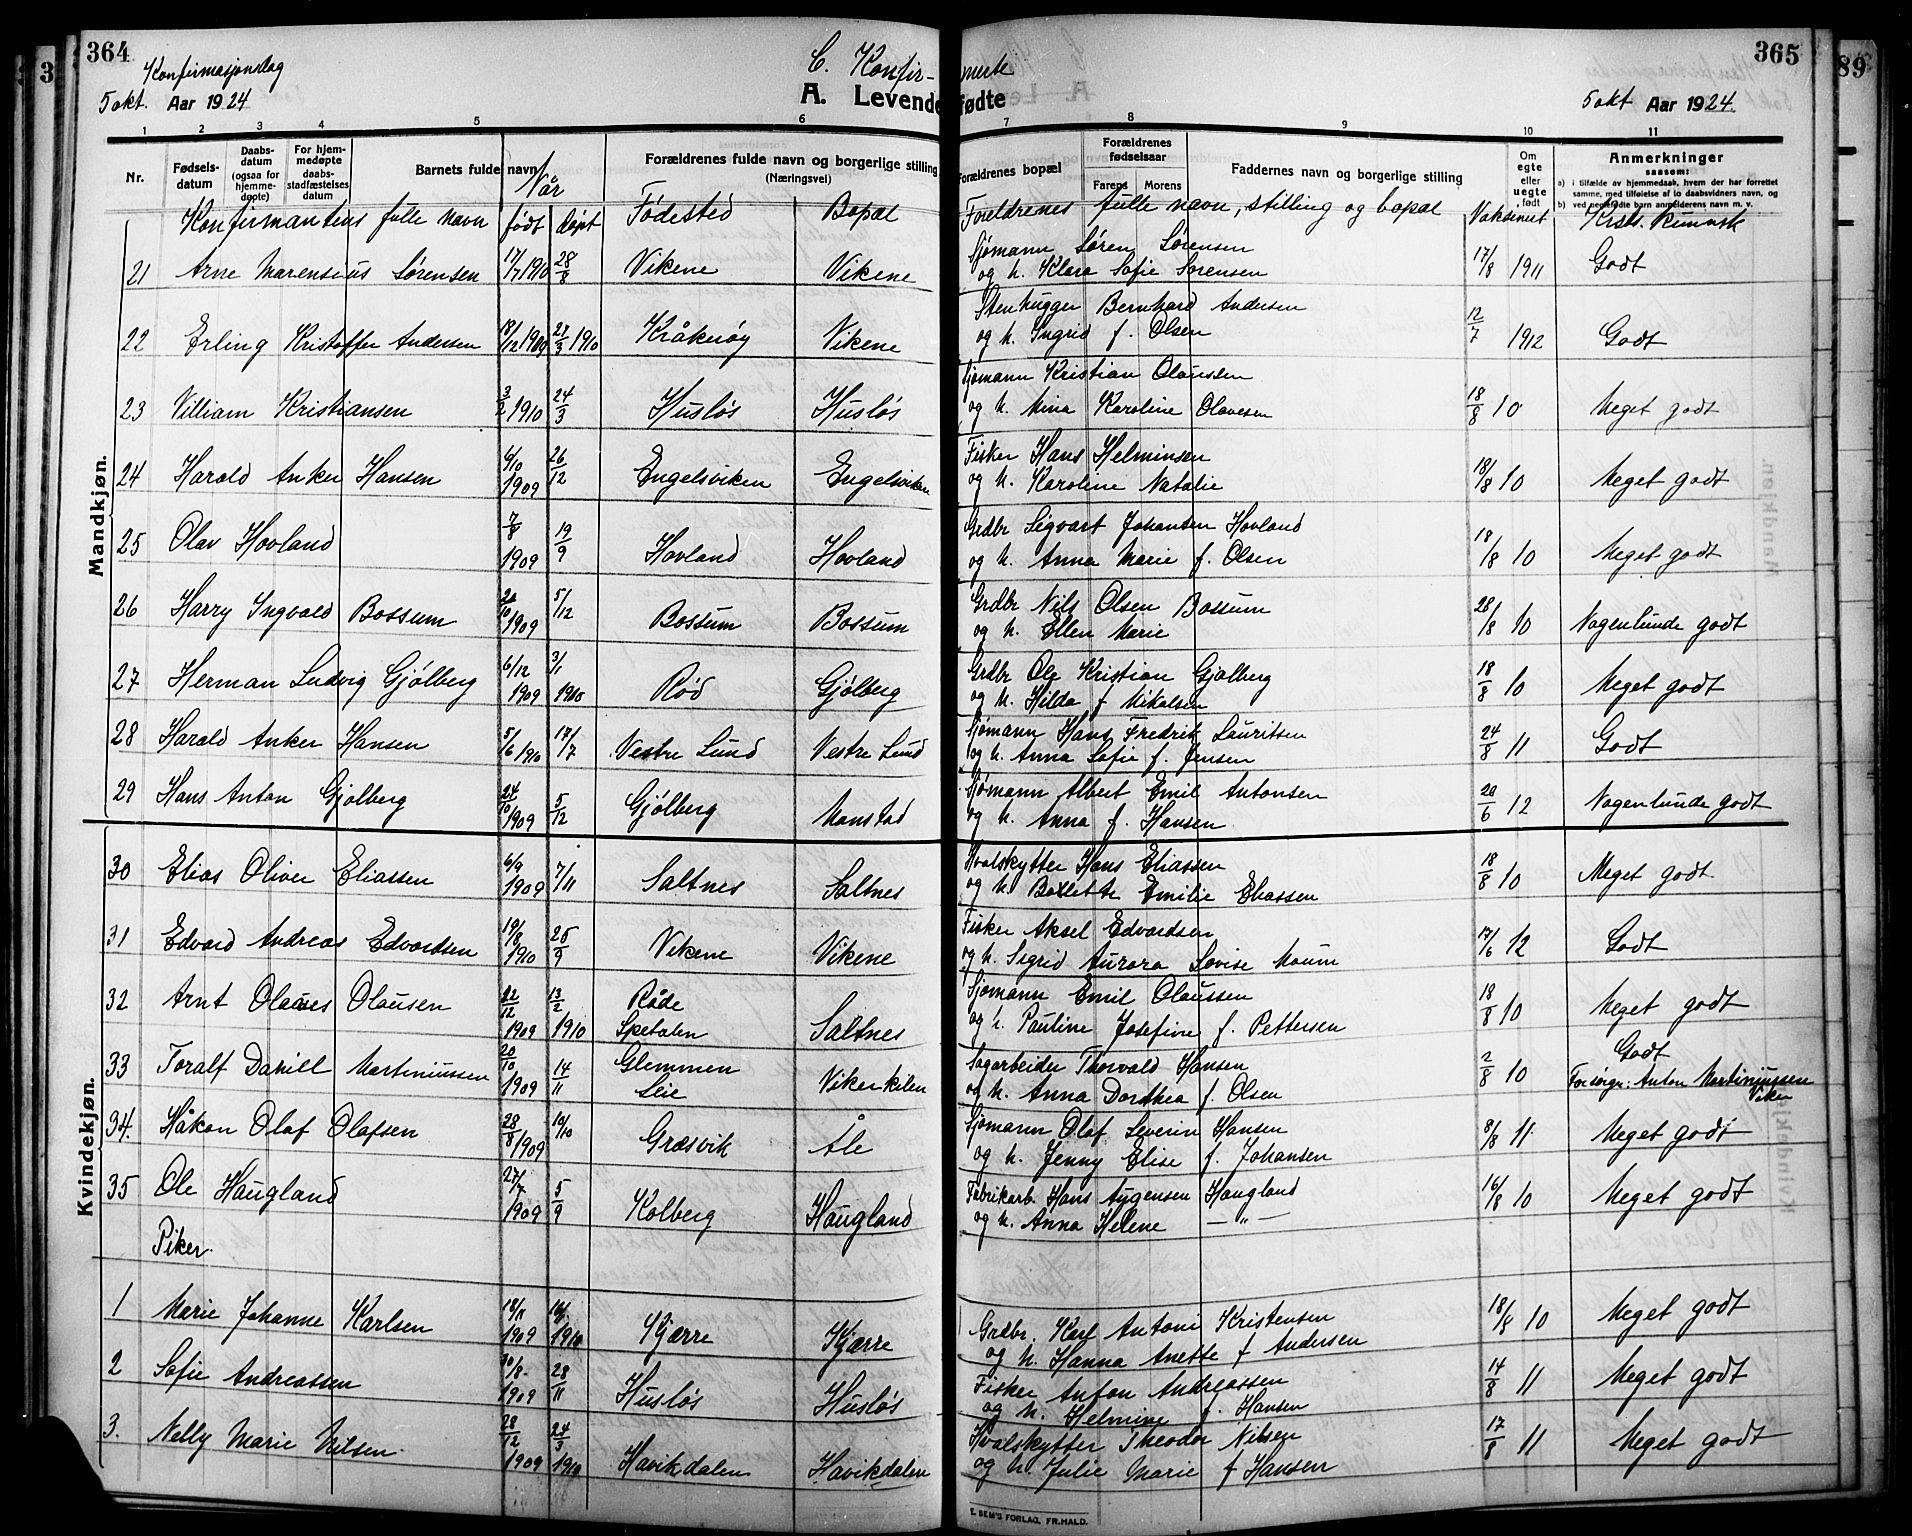 364
Konfirmasjonsdag
5 okt. Aar 1924
C. Konfirmerte
A. Levende fødte
365
5 okt Aar 1924.
89
1 2 3 4 5 6 7 8 9 10 11
Nr. Fødselsdatum Daabsdatum (ogsaa for hjemmedøpte) For hjemmedøpte daabsstadfæstelses datum Barnets fulde navn Forældrenes fulde navn og borgerlige stilling (Næringsvei) Forældrenes bopæl Forældrenes fødselsaar Farens Morens Faddernes navn og borgerlige stilling Om egte eller uegte født Anmerkninger saasom:
a) i tilfælde av hjemmedaab, hvem der har forrettet samme, med tilføielse af to daabsvidners navn, og
b) ved uegtefødte barn anmelderens navn m. v.
Når
Konfirmantens fulle navn født døpt Fødested Bopæl Foreldrenes fulle navn, stilling og bopæl Vaksinert Krists. kunnsk
Mandkjøn.
21 Arne Marensius Sørensen 17/7 1910 28/8 Vikene Vikene Sjømann Søren Sørensen
og h. Klara Sofie Sørensen 17/8 1911 Godt
22 Erling Kristoffer Andersen 18/12 1909 27/3 1910 Kråkerøy Vikene Stenhugger Bernhard Andersen
og h. Ingrid f. Olsen 12/7 1912 Godt
23 Villiam Kristiansen 3/2 1910 24/3 Husløs Husløs Sjømann Kristian Olaussen
og h. Mina Karoline Olavesen 18/8 10 Meget godt
24 Harald Anker Hansen 6/10 1909 26/12 Engelsviken Engelsviken Fisker Hans Helminsen
og h. Karoline Natalie 18/8 10 Meget godt
25 Olav Hovland 7/8 1909 19/9 Hovland Hovland Grdbr Sigvart Johansen Hovland
og h. Anna Marie f. Olsen 18/8 10 Meget godt
26 Harry Ingvald Bossum 1909 5/12 Bossum Bossum Grdbr Nils Olsen Bossum
og h. Ellen Marie 28/8 10 Nogenlunde godt
27 Herman Ludvig Gjølberg 6/12 1909 3/1 1910 Rød Gjølberg Grdbr Ole Kristian Gjølberg
og h. Hilda f Nikolsen 18/8 10 Meget godt
28 Harald Anker Hansen 5/6 1910 17/7 Vestre Lund Vestre Lund Sjømann Hans Fredrik Lauritsen
og h. Anna Sofie f. Jensen 24/8 11 Godt
29 Hans Anton Gjølberg 24/10 1909 5/12 Gjølberg Monstad Sjømann Albert Emil Antonsen
og h. Anna f. Hansen 20/6 12 Nogenlunde godt
Kvindekjøn.
30 Elias Oliver Eliassen 6/9 1909 7/11 Saltnes Saltnes Hvalskytter Hans Eliassen
og h. Emilie Eliassen 18/8 10 Meget godt
31 Edvard Andreas Edvardsen 19/8 1910 25/9 Vikene Vikene Fisker Aksel Edvardsen
og h. Sigrid Aurora Lovise Moum 17/6 12 Godt
32 Arnt Olaves Olausen 22/12 1909 13/2 1910 Råde
Spetalen Saltnes Sjømann Emil Olaussen
og h. Pauline Josefine f. Pettersen 18/8 10 Meget godt
33 Toralf Daniell Martiniussen 20/10 1909 14/11 Glemmen
Leie Vikerkilen Sagarbeider Thorvald Hansen
og h. Anna Dorthea f. Olsen 2/8 10 Godt
Forsørgr: Anton Martiniussen
Viken
34. Håkon Olaf Olafsen 28/8 1909 10/10 Græsvik Åle Sjømann Olaf Severin Hansen
og h. Jenny Elise f. Johansen 8/8 11 Meget godt
35 Ole Haugland 27/7 1909 5/9 Kolberg Haugland Fabrikarb. Hans Aagensen Haugland
og h. Anna Helene —"— 16/8 10 Meget godt
Piker.
1 Marie Johanne Karlsen 18/11 1909 1910 Kjærre Kjærre Grdbr. Karl Antoni Kristensen
og h. Hanna Anette f Andersen 18/8 10 Meget godt
2 Sofie Andreassen 30/8 1909 28/11 Husløs Husløs Fisker Anton Andreassen
og h. Helmine f. Hansen 14/8 11 Meget godt
3. Nelly Marie Nilsen 28/12 1909 24/3 1910 Havikdalen Havikdalen Hvalskytter Theodor Nilsen
og h. Julie Marie f Hansen 17/8 11 Meget godt
E. SEM'S FORLAG, FR.HALD.